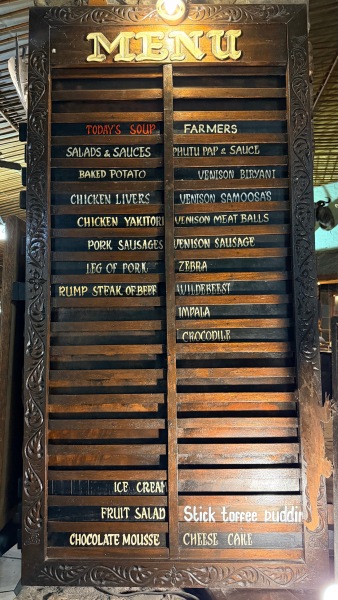 MENU
TODAY'S SOUP
SALADS & SAUCES
BAKED POTATO
CHICKEN LIVERS
CHICKEN YAKITORI
PORK SAUSAGES
LEG OF PORK
RUMP STEAK OF BEEF
ICE CREAM
FRUIT SALAD
CHOCOLATE MOUSSE
FARMERS
PHUTU PAP & SAUCE
VENISON BIRYANI
VENISON SAMOOSA'S
VENISON MEAT BALLS
VENISON SAUSAGE
ZEBRA
WILDEBEEST
IMPALA
CROCODILE
Stick toffee puddin
CHEESE CAKE